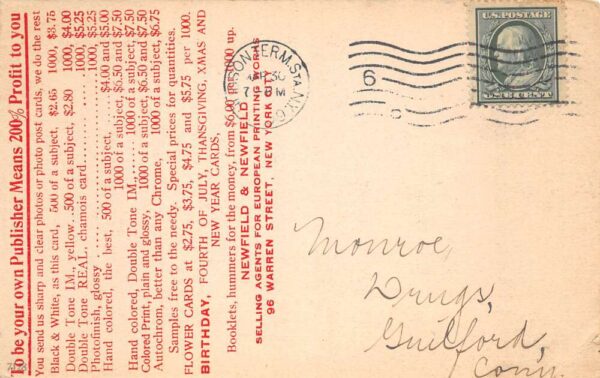 To be your own Publisher Means 200% Profit to you
You send us sharp and clear photos or photo post cards, we do the rest
Black & White, as this card, 500 of a subject, $2.65 1000, $3.75
Double Tone IM., yellow..500 of a subject, $2.80 1000, $4.00
Double Tone REAL, chamois card........ 1000, $5.25
Photofinish, glossy ........ 1000, $5.25
Hand colored, the best, 500 of a subject, ....$4.00 and $5.00
1000 of a subject, $6.50 and $7.50
Hand colored, Double Tone IM., 1000 of a subject, $7.50
Colored Print, plain and glossy, 1000 of a subject, $6.50 and $7.50
Autochrom, better than any Chrome, 1000 of a subject, $6.75
Samples free to the needy. Special prices for quantities.
FLOWER CARDS at $2.75, $3.75, $4.75 and $5.75 per 1000.
BIRTHDAY, FOURTH OF JULY, THANSGIVING, XMAS AND
NEW YEAR CARDS,
Booklets, hummers for the money, from $6.00 per 1000 up.
NEWFIELD & NEWFIELD
SELLING AGENTS FOR EUROPEAN PRINTING WORKS
96 WARREN STREET, NEW YORK CITY
HUDSON TERM. STA. N.Y.
30
7
M
6
U.S. POSTAGE
ONE CENT
Monroe,
Drugs,
Guilford,
Conn.